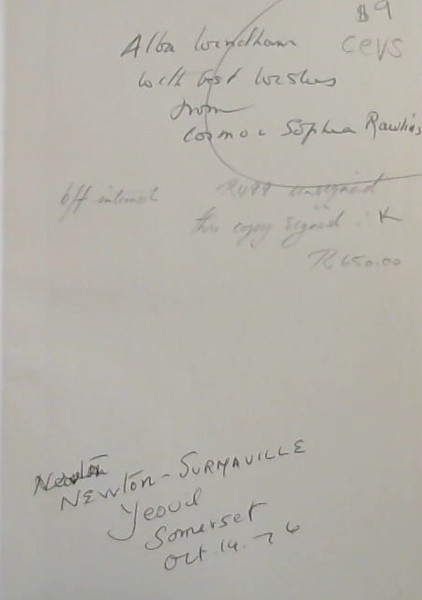 $9
cevs
Alba Windham
with best wishes
from
Cosmo & Sophia Rawlins
off internet R499 unsigned
this copy signed : K
R650.00
Newton
NEWTON - SURMAVILLE
Yeovil
Somerset
Oct. 14. 76